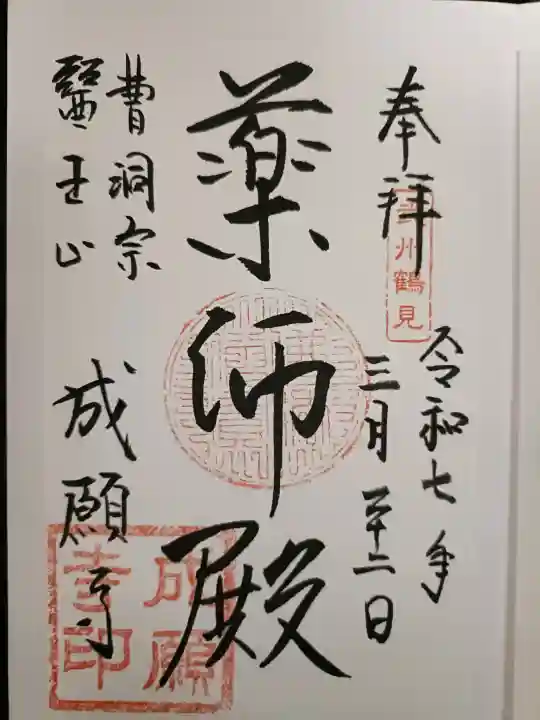 奉拝
武州鶴見
令和七年
三月二十二日
薬師殿
曹洞宗
醫王山
成願寺
成願寺印